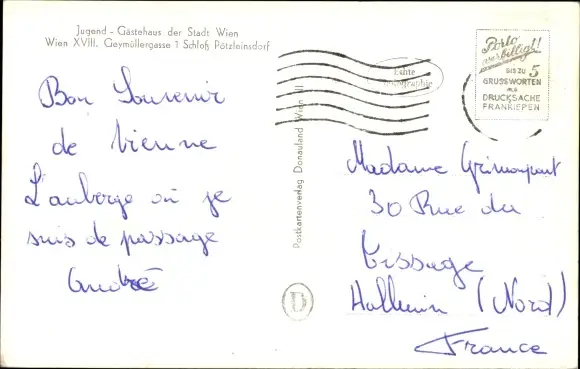 Jugend - Gästehaus der Stadt Wien
Wien XVIII. Geymüllergasse 1 Schloß Pötzleinsdorf
Bon Souvenir
de Vienne
L'auberge où je
suis de passage
André
Postkartenverlag Donauland Wien III
Echte
Photographie
D
Porto
verbilligt!!
BIS ZU 5
GRUSSWORTEN
als
DRUCKSACHE
FRANKIEREN
Madame Grimonpont
30 Rue du
Tissage
Halluin (Nord)
France